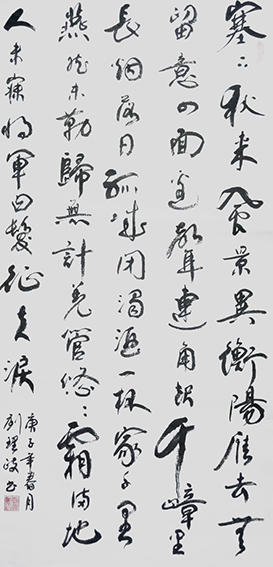 塞下秋来風景異衡陽雁去無
留意四面邊聲連角起千嶂里
長烟落日孤城闭濁酒一杯家万里
燕然未勒歸無計羌管悠悠霜满地
人未寐将軍白髮征夫淚
庚子年春月